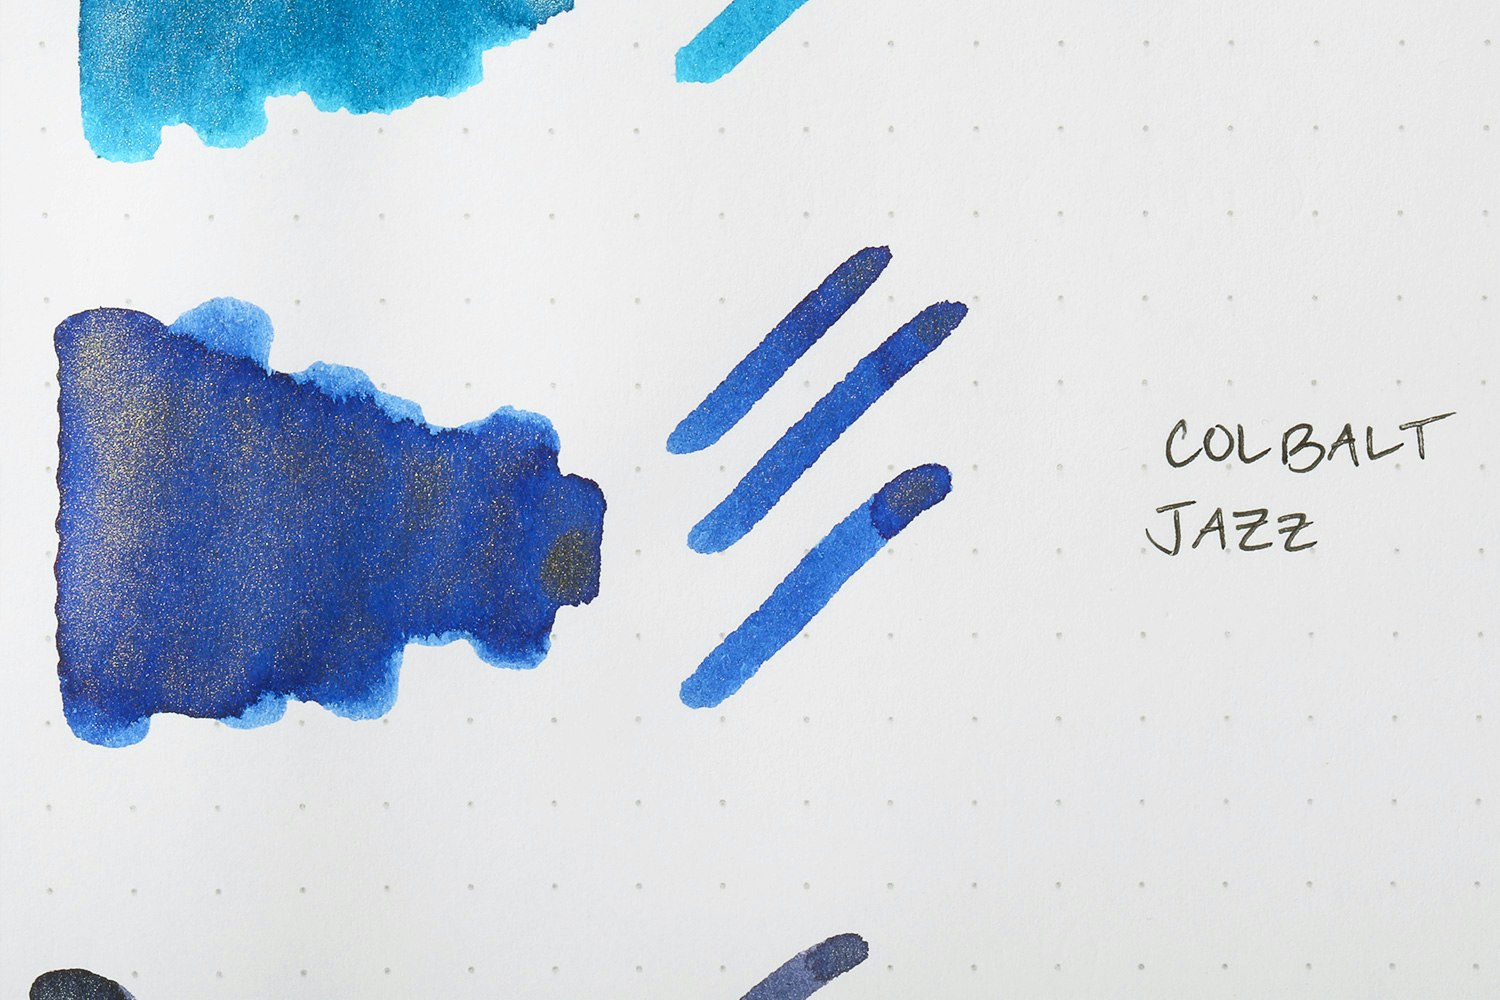 COLBALT
JAZZ